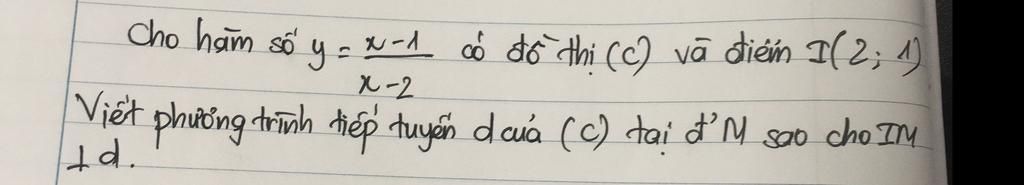 Cho hàm số y = x-1 / x-2 có đồ thị (C) và điểm I(2; 1)
Viết phương trình tiếp tuyến d của (C) tại đ' M sao cho IM
⊥ d.